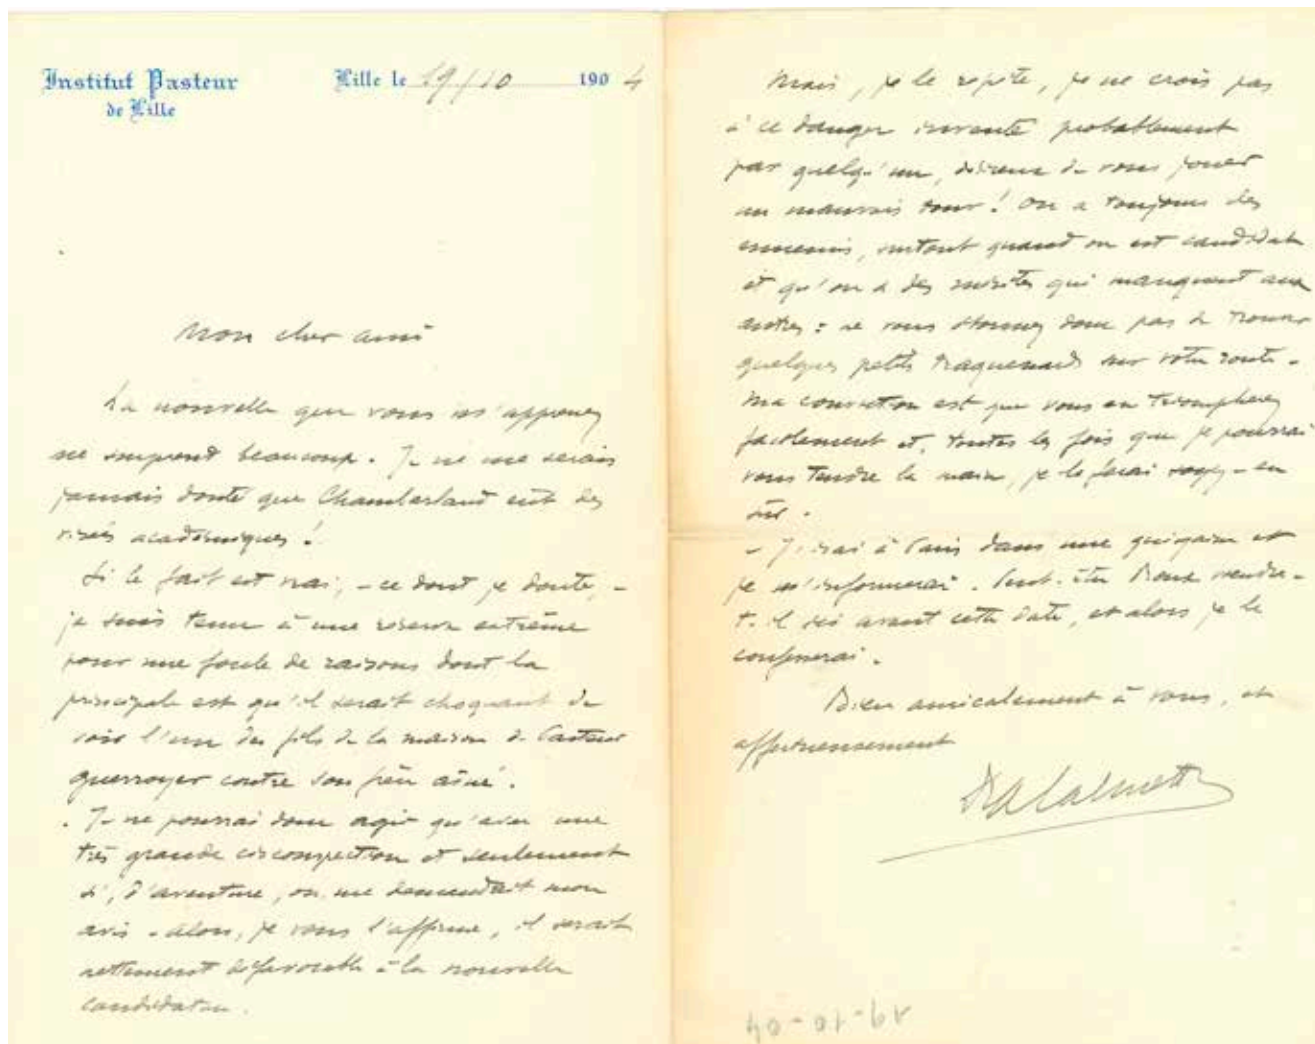 Institut Pasteur
de Lille
Lille le 19/10 1904
Mon cher ami
La nouvelle que vous m'apprenez
me surprend beaucoup. Je ne me serais
jamais douté que Chamberland eût des
visées académiques !
Si le fait est vrai, - ce dont je doute, -
je suis tenu à une réserve extrême
pour une foule de raisons dont la
principale est qu'il serait choquant de
voir l'un des fils de la maison de Pasteur
guerroyer contre son frère aîné.
. Je ne pourrai donc agir qu'avec une
très grande circonspection et seulement
si, d'aventure, on me demandait mon
avis - alors, je vous l'affirme, il serait
nettement défavorable à la nouvelle
candidature.
Mais, je le répète, je ne crois pas
à ce danger inventé probablement
par quelqu'un, désireux de vous jouer
un mauvais tour ! On a toujours des
ennemis, surtout quand on est candidat
et qu'on a des mérites qui manquent aux
autres : ne vous étonnez donc pas de trouver
quelques petits traquenards sur votre route -
Ma conviction est que vous en triompherez
facilement et, toutes les fois que je pourrai
vous tendre la main, je le ferai soyez-en
sûr.
- J'irai à Paris dans une quinzaine et
je m'informerai. Peut-être Roux viendra-
t-il ici avant cette date, et alors je le
confesserai.
Bien amicalement à vous, et
affectueusement
Dr A Calmette
19-10-04